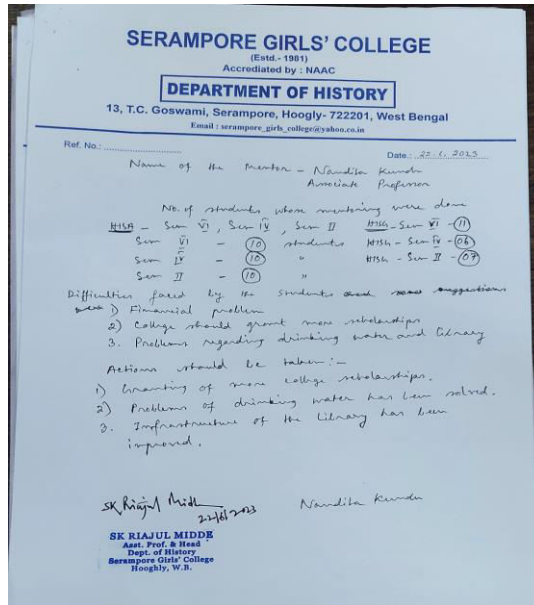 SERAMPORE GIRLS' COLLEGE
(Estd.- 1981)
Accrediated by : NAAC
DEPARTMENT OF HISTORY
13, T.C. Goswami, Serampore, Hoogly- 722201, West Bengal
Email : serampore_girls_college@yahoo.co.in
Ref. No.:
Date.: 22.6.2023
Name of the Mentor – Nandita Kundu
Associate Professor
No. of students whose mentoring were done
HISA – Sem VI, Sem IV, Sem II HISG – Sem VI – 11
Sem VI – 10 students HISG – Sem IV – 06
Sem IV – 10 " HISG – Sem II – 07
Sem II – 10 "
Difficulties faced by the students suggestions
1) Financial problem
2) College should grant more scholarships
3. Problems regarding drinking water and library
Actions should be taken :–
1) Granting of more college scholarships.
2) Problems of drinking water has been solved.
3. Infrastructure of the library has been
improved.
SK Riajul Midde
22/6/2023
Nandita Kundu
SK RIAJUL MIDDE
Asst. Prof. & Head
Dept. of History
Serampore Girls' College
Hooghly, W.B.